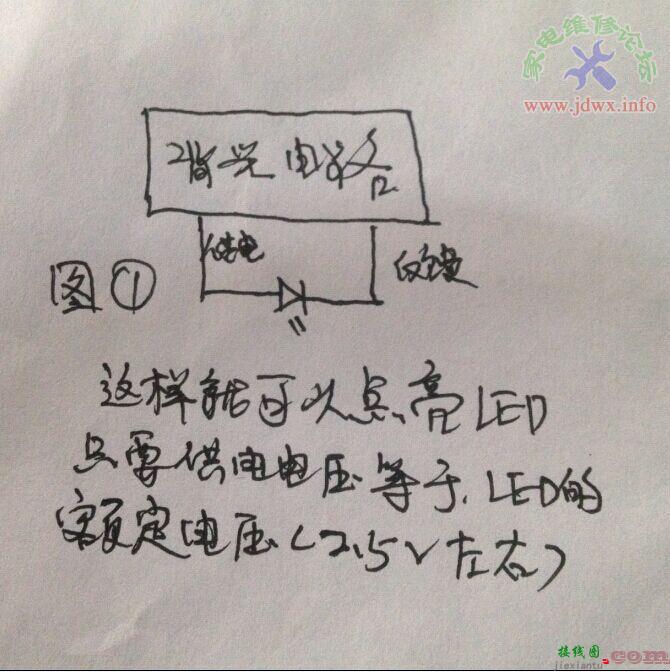 家电维修论坛
www.jdwx.info
背光电路
供电
反馈
图①
这样就可以点亮LED
只要供电电压等于LED的
额定电压（2.5V左右）
接线图
jiexiantu
.com